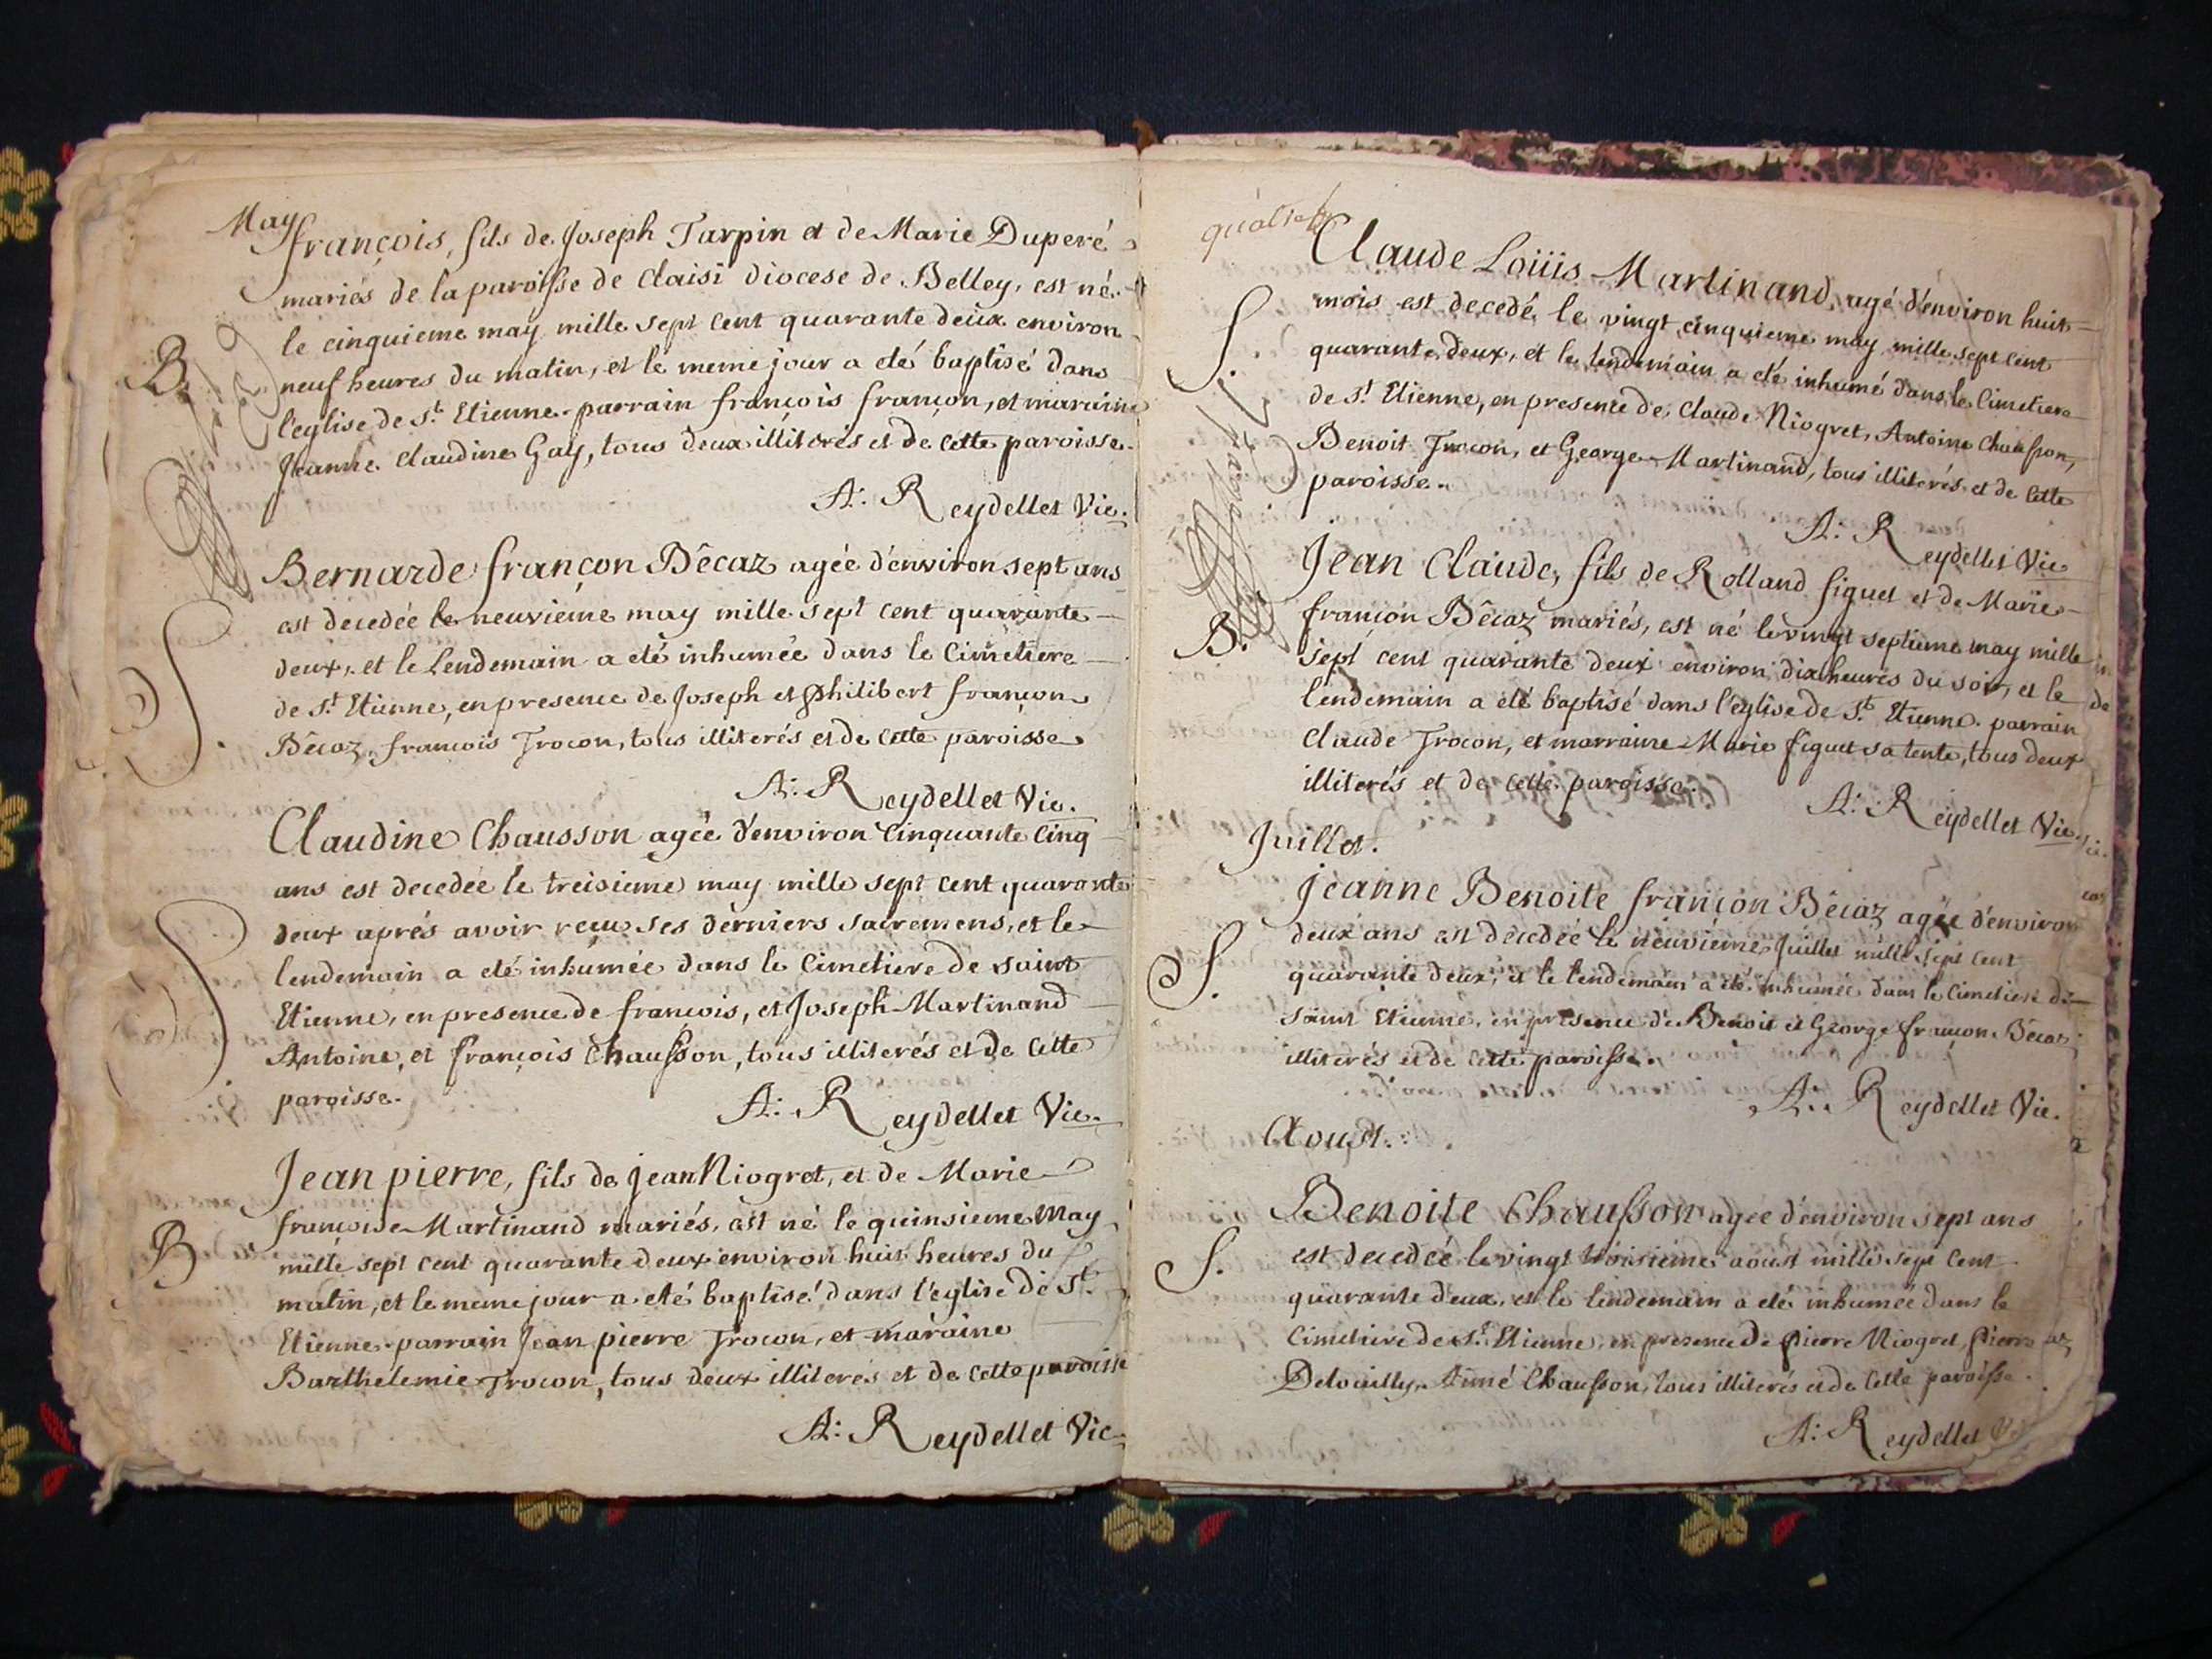 May
françois, fils de Joseph Tarpin et de Marie Duperé
mariés de la paroisse de Claisi diocese de Belley, est né
le cinquieme may mille sept cent quarante deux environ
B.
neuf heures du matin, et le meme jour a eté baptisé dans
l'eglise de St. Etienne. parrain françois françon, et maraine
Jeanne Claudine Gay, tous deux illiterés et de cette paroisse.
A: Reydellet Vic.
Bernarde françon Bêcaz agée d'environ sept ans
est decedée le neuvieme may mille sept cent quarante
deux, et le Lendemain a eté inhumée dans le Cimetiere
S.
de St. Etienne, en presence de Joseph et philibert françon
Bêcaz, francois Trocon, tous illiterés et de cette paroisse
A: Reydellet Vic.
Claudine Chausson agée d'environ cinquante cinq
ans est decedée le treisieme may mille sept cent quarante
deux aprés avoir reçu ses derniers sacremens, et le
S.
lendemain a eté inhumée dans le Cimetiere de saint
Etienne, en presence de francois, et Joseph Martinand
Antoine, et françois Chausson, tous illiterés et de cette
paroisse.
A: Reydellet Vic.
Jean pierre, fils de jean Niogret, et de Marie
françoise Martinand mariés, est né le quinsieme May
B
mille sept cent quarante deux environ huit heures du
matin, et le meme jour a eté baptisé dans l'eglise de St.
Etienne. parrain Jean pierre Trocon, et maraine
Barthelemie Trocon, tous deux illiterés et de cette paroisse
A: Reydellet Vic.
Claude Loüis Martinand, agé d'environ huit
mois est decedé le vingt cinquieme may mille sept cent
S.
quarante deux, et le lendemain a eté inhumé dans le Cimetiere
de St. Etienne, en presence de Claude Niogret, Antoine Chausson,
Benoit Trocon, et George Martinand, tous illiterés et de cette
paroisse.
A: Reydellet Vic
Jean Claude, fils de Rolland figuet et de Marie
françon Bêcaz mariés, est né le vingt septieme may mille
B.
sept cent quarante deux environ dix heures du soir, et le
lendemain a eté baptisé dans l'eglise de St. Etienne. parrain
Claude Trocon, et marraine Marie figuet sa tente, tous deux
illiterés et de cette paroisse.
A: Reydellet Vic.
Juillet.
Jeanne Benoite françon Bêcaz agée d'environ
deux ans est decedée le neuvieme Juillet mille sept cent
S.
quarante deux, et le lendemain a eté inhumée dans le Cimetiere de
saint Etienne, en presence de Benoit et George françon Bêcaz
illiterés et de cette paroisse.
A: Reydellet Vic.
Aoust.
Benoite Chausson agée d'environ sept ans
S.
est decedée le vingt troisieme aoust mille sept cent
quarante deux, et le lendemain a eté inhumée dans le
Cimetiere de St. Etienne, en presence de pierre Niogret, pierre
Delouilly, Aimé Chausson, tous illiterés et de cette paroisse.
A: Reydellet